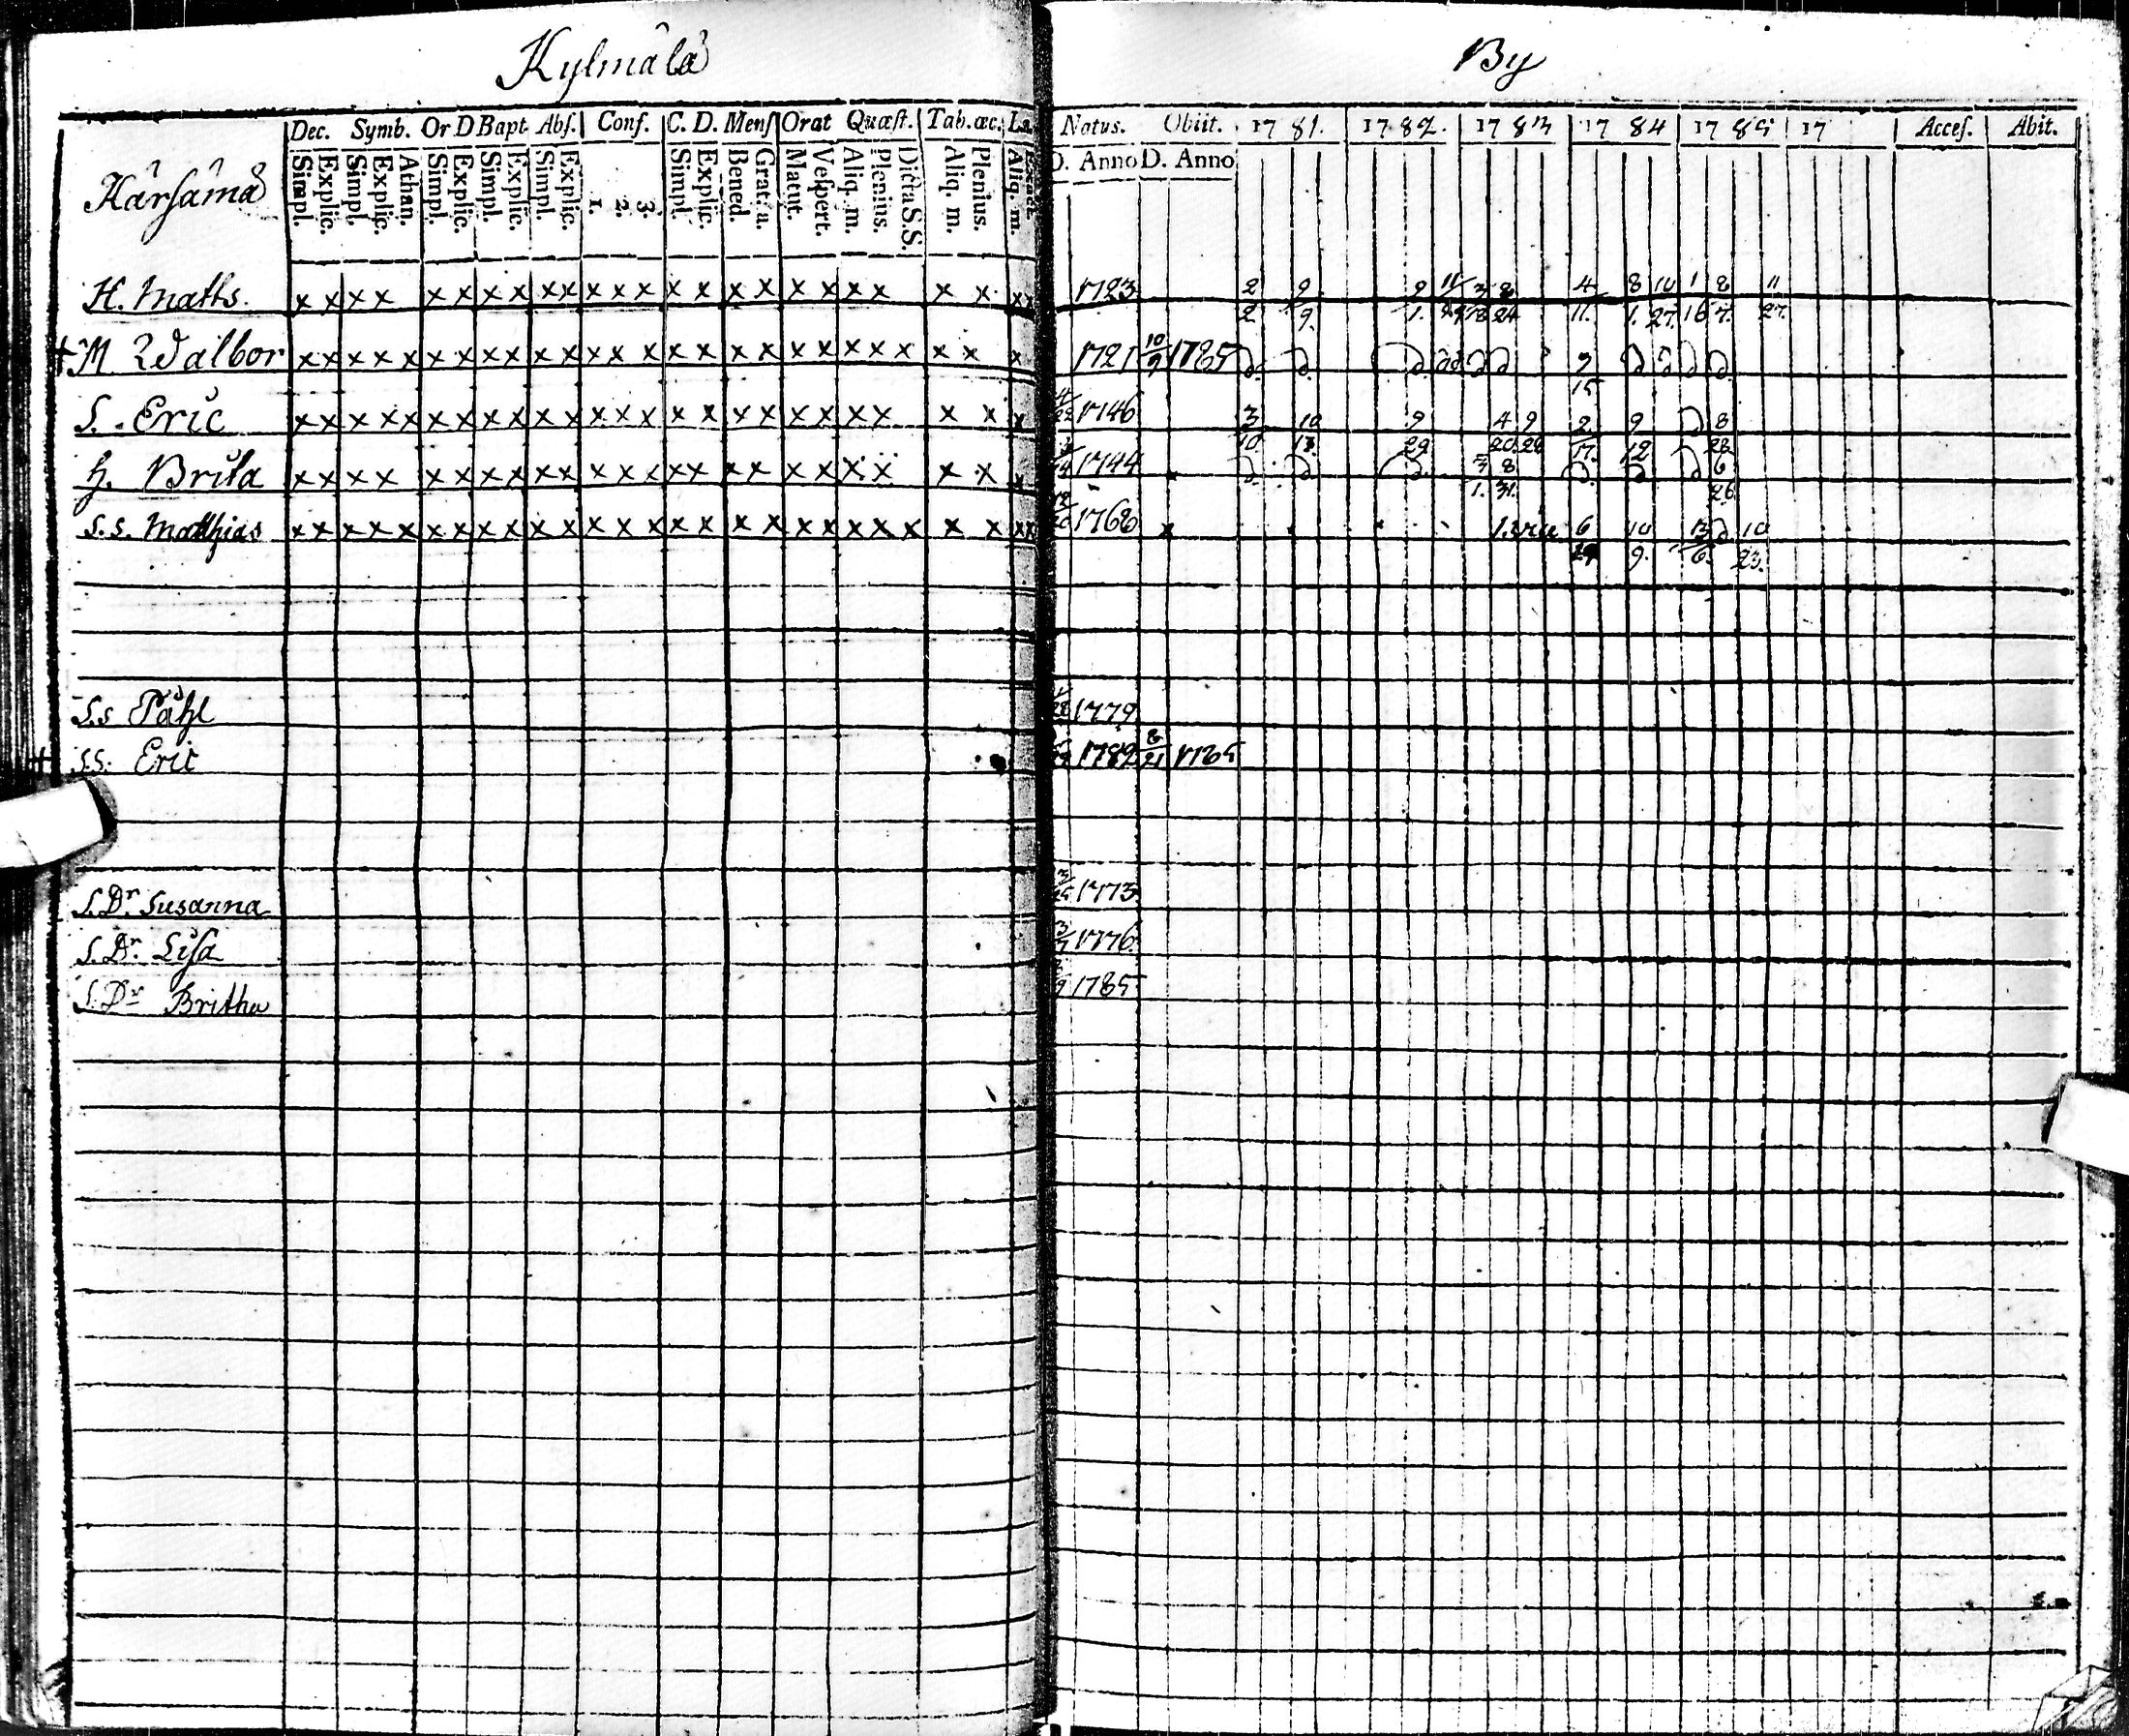 Kylmälä By
Dec. Symb. Or D Bapt Abſ. Conf. C. D. Menſ Orat Quæſt. Tab. œc. Natus. Obiit. 1781. 1782. 1783 1784 1785 17 Acceſ. Abit.
Simpl. Explic. Simpl. Explic. Athan. Simpl. Explic. Simpl. Explic. Simpl. Explic. 1. 2. 3. Simpl. Explic. Bened. Grat. a. Matut. Veſpert. Aliq. m. Plenius. Dicta S.S. Aliq. m. Plenius. Aliq. m. D. Anno D. Anno
Kärsämä
H. Matts. x x x x x x x x x x x x x x x x x x x x x x x x x 1723 2/2 9/9. 9/1. 3/8 8/24 4/11. 8/1. 10/27. 1/16 8/7. 11/27.
† M. Walbor x x x x x x x x x x x x x x x x x x x x x x x x x x 1721 10/9 1785
S. Eric x x x x x x x x x x x x x x x x x x x x x x x x x 1746 3/10. 10/13. 9/29 4/20. 9/28 2/17. 9/12 8/28.
H. Brita x x x x x x x x x x x x x x x x x x x x x x x x 1744 3/1. 8/31. 6/26
S. s. Matthias x x x x x x x x x x x x x x x x x x x x x x x x x x x 1768 x 6 10/9. 10/23.
S. s Påhl 1779
† S. s. Eric 1782 8/21 1785
S. Dr. Susanna 1773.
S. Dr. Lisa 1776.
S. Dr Britha 1785